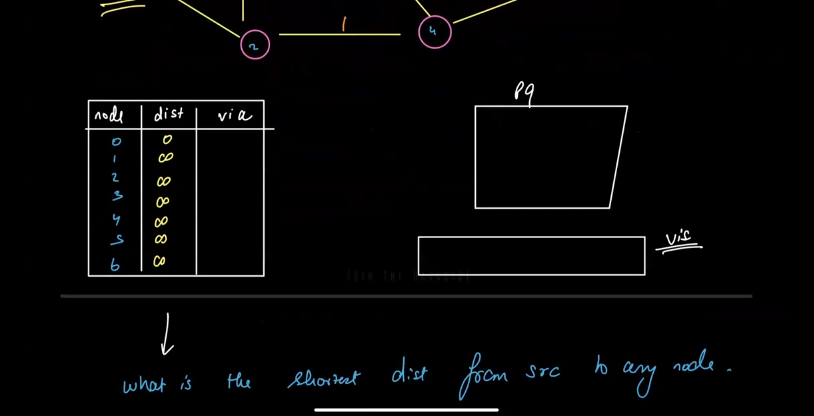 1
2
4
pq
node dist via
0 0
1 ∞
2 ∞
3 ∞
4 ∞
5 ∞
6 ∞
vis
what is the shortest dist from src to any node.